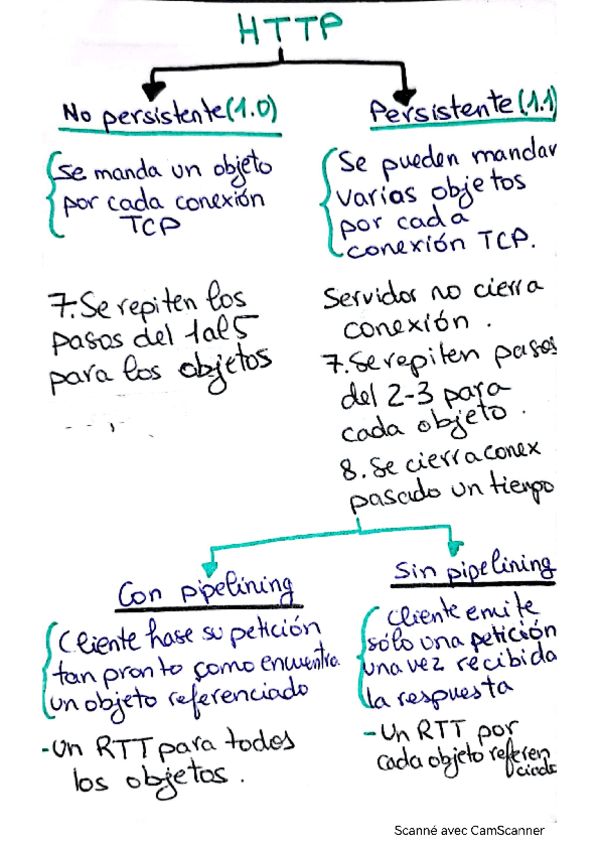 HTTP
No persistente (1.0)
Se manda un objeto
por cada conexión
TCP
7. Se repiten los
pasos del 1 al 5
para los objetos
Persistente (1.1)
Se pueden mandar
varias objetos
por cada
conexión TCP.
Servidor no cierra
conexión.
7. Se repiten pasos
del 2-3 para
cada objeto.
8. Se cierra conex
pasado un tiempo
Con pipelining
Cliente hase su petición
tan pronto como encuentra
un objeto referenciado
- Un RTT para todos
los objetos.
Sin pipelining
Cliente emite
sólo una petición
una vez recibida
la respuesta
- Un RTT por
cada objeto referen
ciado
Scanné avec CamScanner